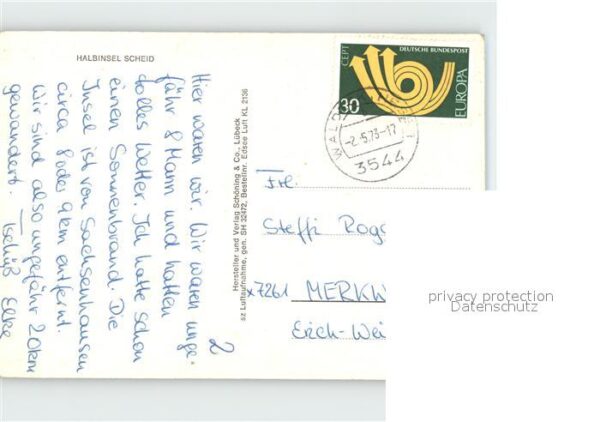 HALBINSEL SCHEID
Hier waren wir. Wir waren unge-
fähr 8 Mann und hatten
tolles Wetter. Ich hatte schon
einen Sonnenbrand. Die
Insel ist von Sachsenhausen
circa 8 oder 9 km entfernt.
Wir sind also ungefähr 20 km
gewandert. Tschüß Elke
2
Hersteller und Verlag Schöning & Co., Lübeck
sz Luftaufnahme, gen. SH 32472, Bestellnr. Edsee Luft KL 2136
CEPT
DEUTSCHE BUNDESPOST
30
EUROPA
WALD
-2.5.73-17
3544
Frl.
Steffi Rog
x7261 MERKW
Erich-Wei
privacy protection
Datenschutz